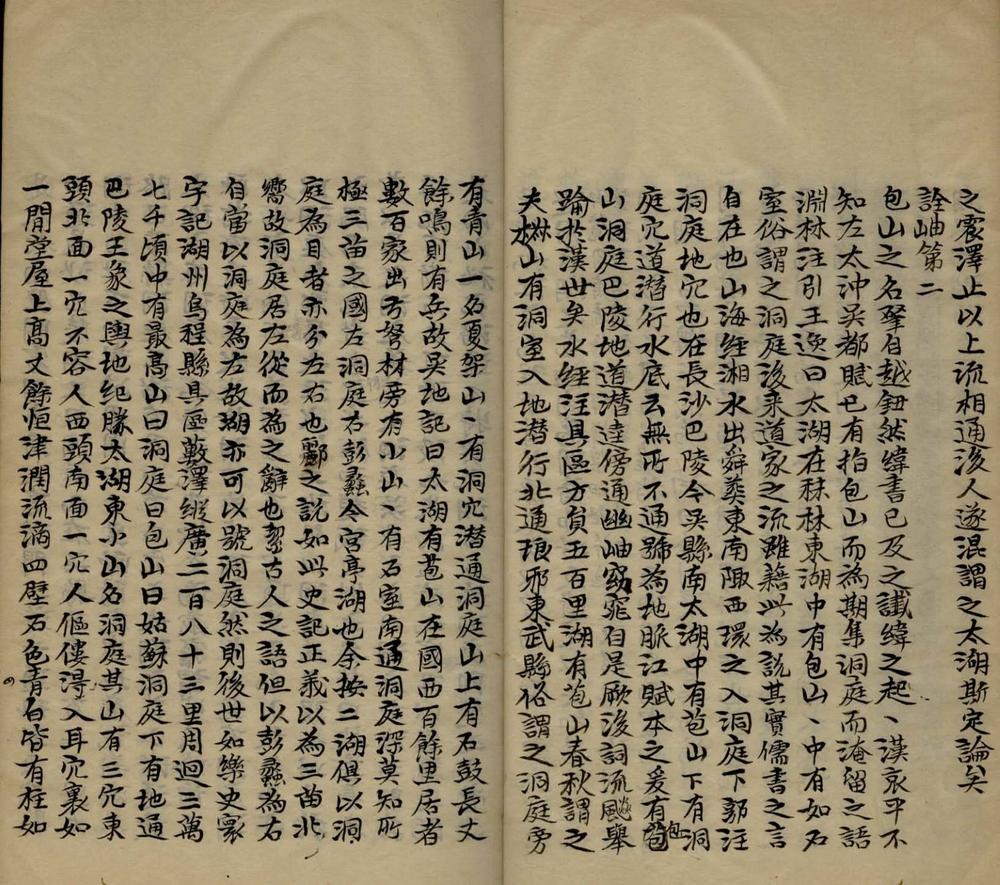 之震澤止以上流相通後人遂混謂之太湖斯定論矣
詮岫第二
包山之名肇自越鈕然緯書已及之讖緯之起丶漢哀平不
知左太沖吳都賦已有指包山而為期集洞庭而淹留之語
淵林注引王逸曰太湖在秣林東湖中有包山丶中有如石
室俗謂之洞庭後来道家之流雖藉此為說其實儒書之言
自在也山海經湘水出舜葬東南陬西環之入洞庭下郭注
洞庭地穴也在長沙巴陵令吳縣南太湖中有苞山下有洞
庭穴道潛行水底云無所不通號為地脈江賦本之爰有苞包
山洞庭巴陵地道潛逵傍通幽岫窈窕自是厥後詞流飈舉
踰於漢世矣水經注具區方員五百里湖有苞山春秋謂之
夫椒山有洞室入地潛行北通琅邪東武縣俗謂之洞庭旁
有青山一名夏架山丶有洞穴潛通洞庭山上有石鼓長丈
餘鳴則有兵故吳地記曰太湖有苞山在國西百餘里居者
數百家出弓弩材旁有小山丶有石室南通洞庭深莫知所
極三苗之國左洞庭右彭蠡今宮亭湖也余按二湖俱以洞
庭為目者亦分左右也酈之說如此史記正義以為三苗北
嚮故洞庭居左從而為之辭也絜古人之語但以彭蠡為右
自當以洞庭為左故湖亦可以號洞庭然則後世如樂史寰
宇記湖州烏程縣具區藪澤縱廣二百八十三里周迴三萬
七千頃中有最高山曰洞庭曰包山曰姑蘇洞庭下有地通
巴陵王象之輿地紀勝太湖東小山名洞庭其山有三穴東
頭北面一穴不容人西頭南面一穴人傴僂得入耳穴裏如
一間堂屋上高丈餘恒津潤流滴四壁石色青白皆有柱如